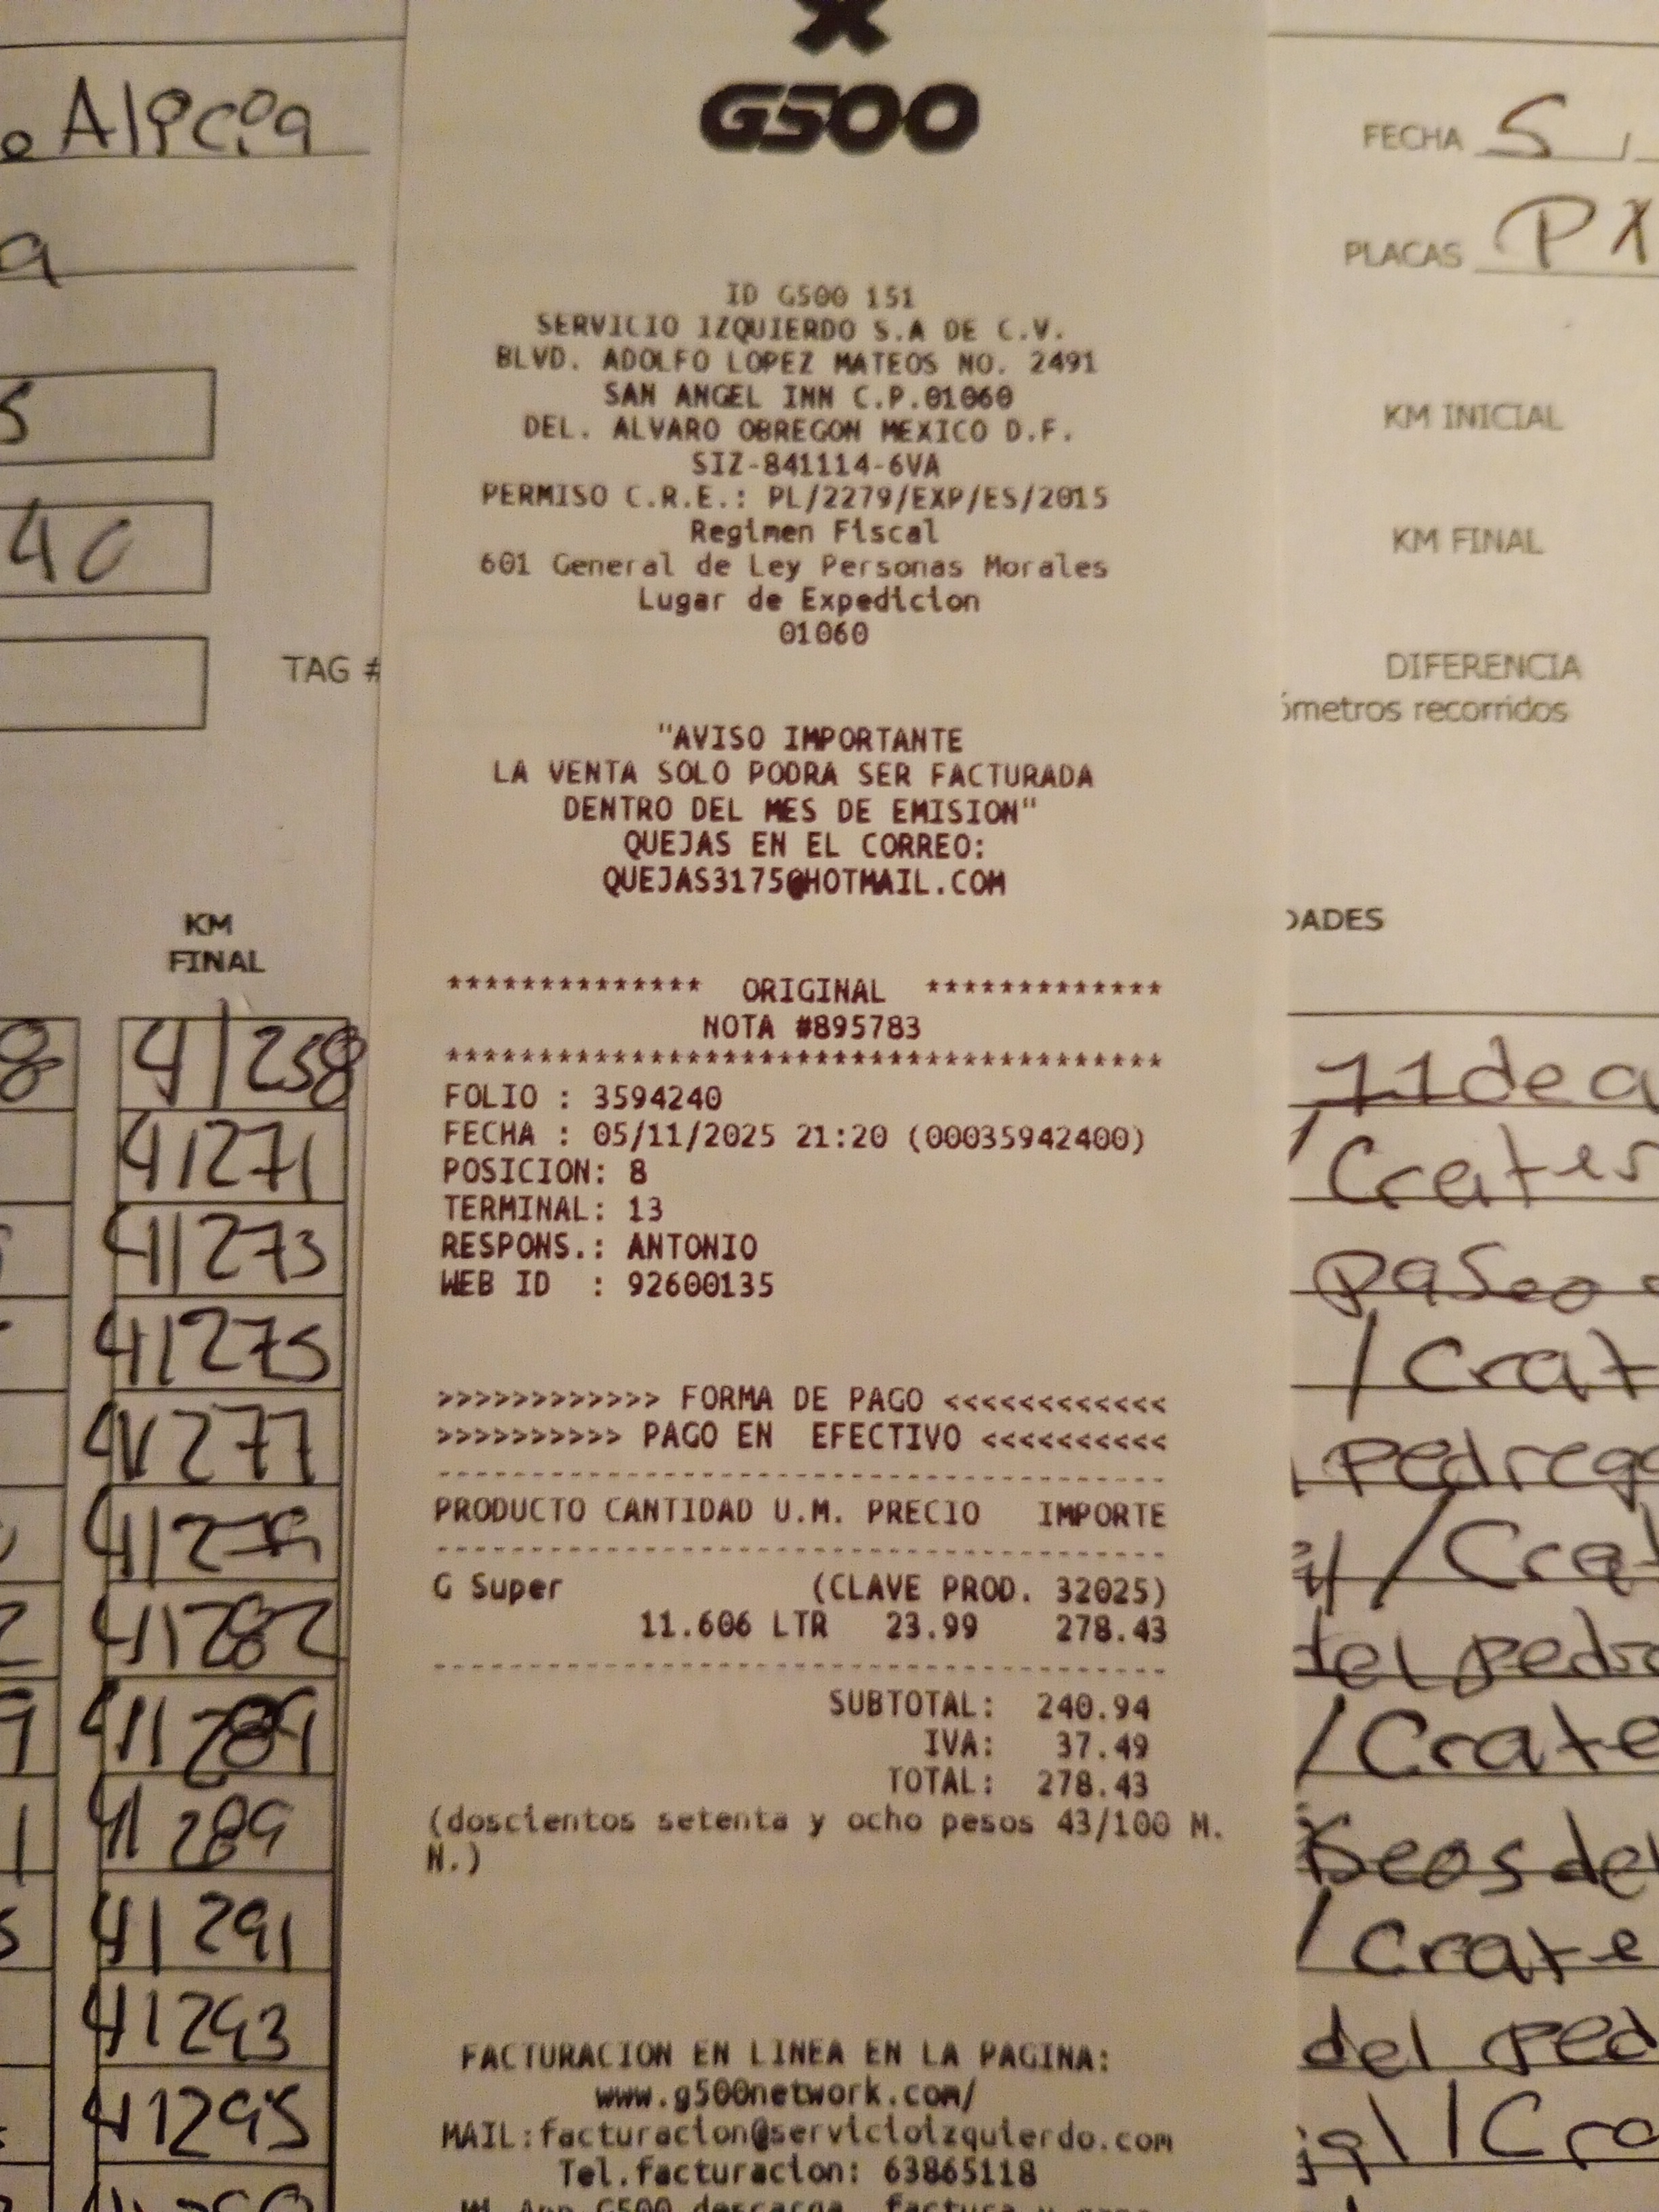 G500
ID G500 151
SERVICIO IZQUIERDO S.A DE C.V.
BLVD. ADOLFO LOPEZ MATEOS NO. 2491
SAN ANGEL INN C.P.01060
DEL. ALVARO OBREGON MEXICO D.F.
SIZ-841114-6VA
PERMISO C.R.E.: PL/2279/EXP/ES/2015
Regimen Fiscal
601 General de Ley Personas Morales
Lugar de Expedicion
01060
"AVISO IMPORTANTE
LA VENTA SOLO PODRA SER FACTURADA
DENTRO DEL MES DE EMISION"
QUEJAS EN EL CORREO:
QUEJAS3175@HOTMAIL.COM
************** ORIGINAL *************
NOTA #895783
***************************************
FOLIO : 3594240
FECHA : 05/11/2025 21:20 (00035942400)
POSICION: 8
TERMINAL: 13
RESPONS.: ANTONIO
WEB ID : 92600135
>>>>>>>>>>>> FORMA DE PAGO <<<<<<<<<<<<
>>>>>>>>>> PAGO EN EFECTIVO <<<<<<<<<<
---------------------------------------
PRODUCTO CANTIDAD U.M. PRECIO IMPORTE
---------------------------------------
G Super (CLAVE PROD. 32025)
11.606 LTR 23.99 278.43
---------------------------------------
SUBTOTAL: 240.94
IVA: 37.49
TOTAL: 278.43
(doscientos setenta y ocho pesos 43/100 M.
N.)
FACTURACION EN LINEA EN LA PAGINA:
www.g500network.com/
MAIL:facturacion@servicioizquierdo.com
Tel.facturacion: 63865118
Alicia
a
5
40
TAG #
KM
FINAL
8 41258
41271
41273
41275
41277
41279
2 41282
41289
41291
41293
41295
FECHA 5
PLACAS PX
KM INICIAL
KM FINAL
DIFERENCIA
ómetros recorridos
DADES
11 de a
Crater
paseo
/ Crat
pedrega
/ Crat
del pedre
/ Crate
seos del
/ Crate
del ped
/ Cra